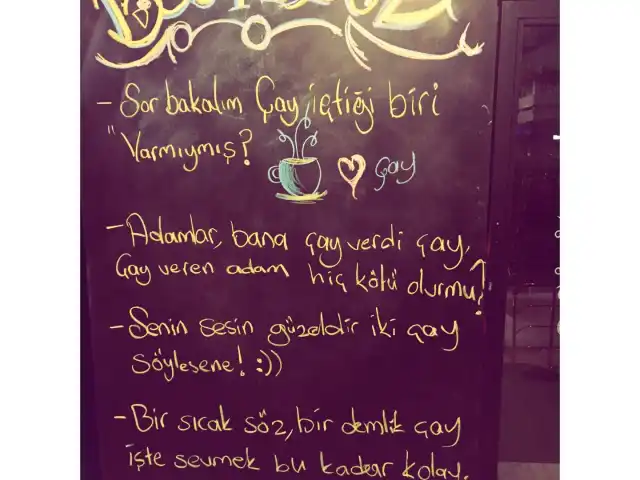 - Sor bakalım Çay içtiği biri
"Varmıymış?
çay
- Adamlar, bana çay verdi çay,
Çay veren adam hiç kötü olurmu?
- Senin sesin güzeldir iki çay
söylesene! :))
- Bir sıcak söz, bir demlik çay
işte sevmek bu kadar kolay.